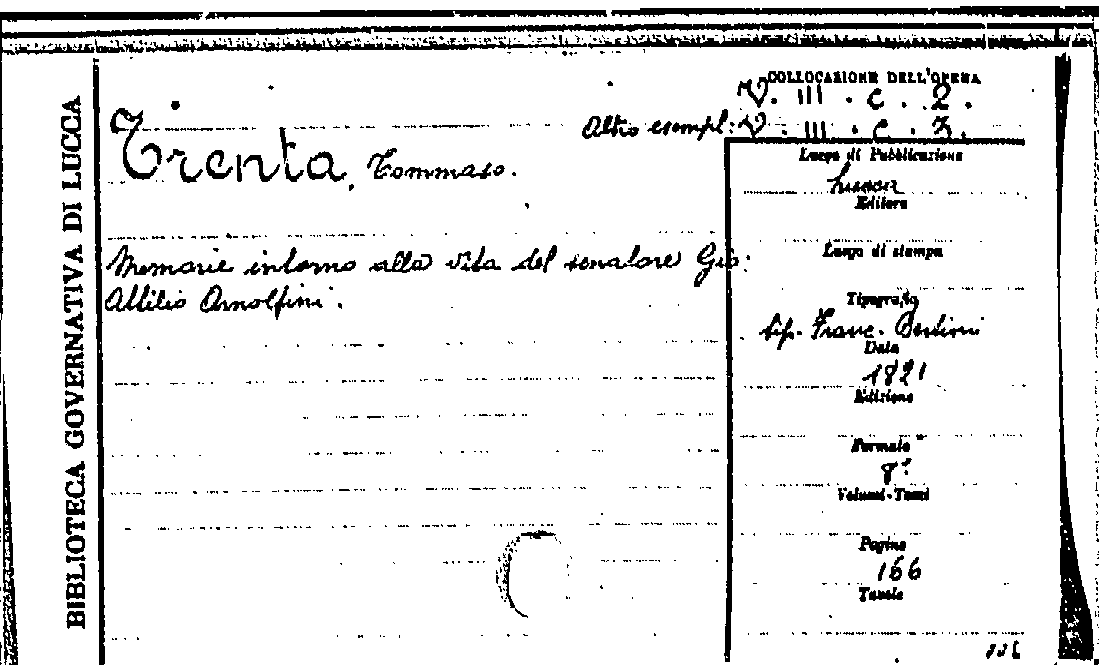 BIBLIOTECA GOVERNATIVA DI LUCCA
COLLOCAZIONE DELL'OPERA
V. III . C . 2 .
Altro esempl: V . III . C . 3 .
Trenta, Tommaso.
Memorie intorno alla vita del senatore Gio:
Attilio Arnolfini.
Luogo di Pubblicazione
Lucca
Editore
Luogo di stampa
Tipografo
tip. Franc. Bertini
Data
1821
Edizione
Formato
8°
Volumi-Tomi
Pagine
166
Tavole